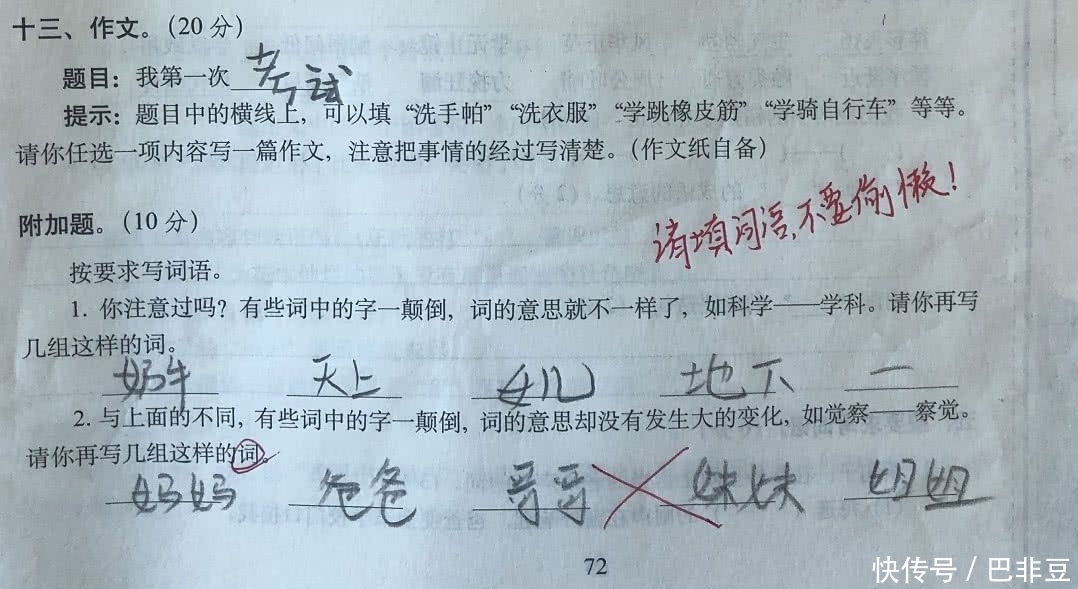 十三、作文。（20 分）
题目：我第一次 考试
提示：题目中的横线上，可以填“洗手帕”“洗衣服”“学跳橡皮筋”“学骑自行车”等等。
请你任选一项内容写一篇作文，注意把事情的经过写清楚。（作文纸自备）
请填词语，不要偷懒！
附加题。（10 分）
按要求写词语。
1. 你注意过吗？有些词中的字一颠倒，词的意思就不一样了，如科学——学科。请你再写
几组这样的词。
奶牛 天上 女儿 地下 一
2. 与上面的不同，有些词中的字一颠倒，词的意思却没有发生大的变化，如觉察——察觉。
请你再写几组这样的词。
妈妈 爸爸 哥哥 妹妹 姐姐
72
快传号 / 巴非豆